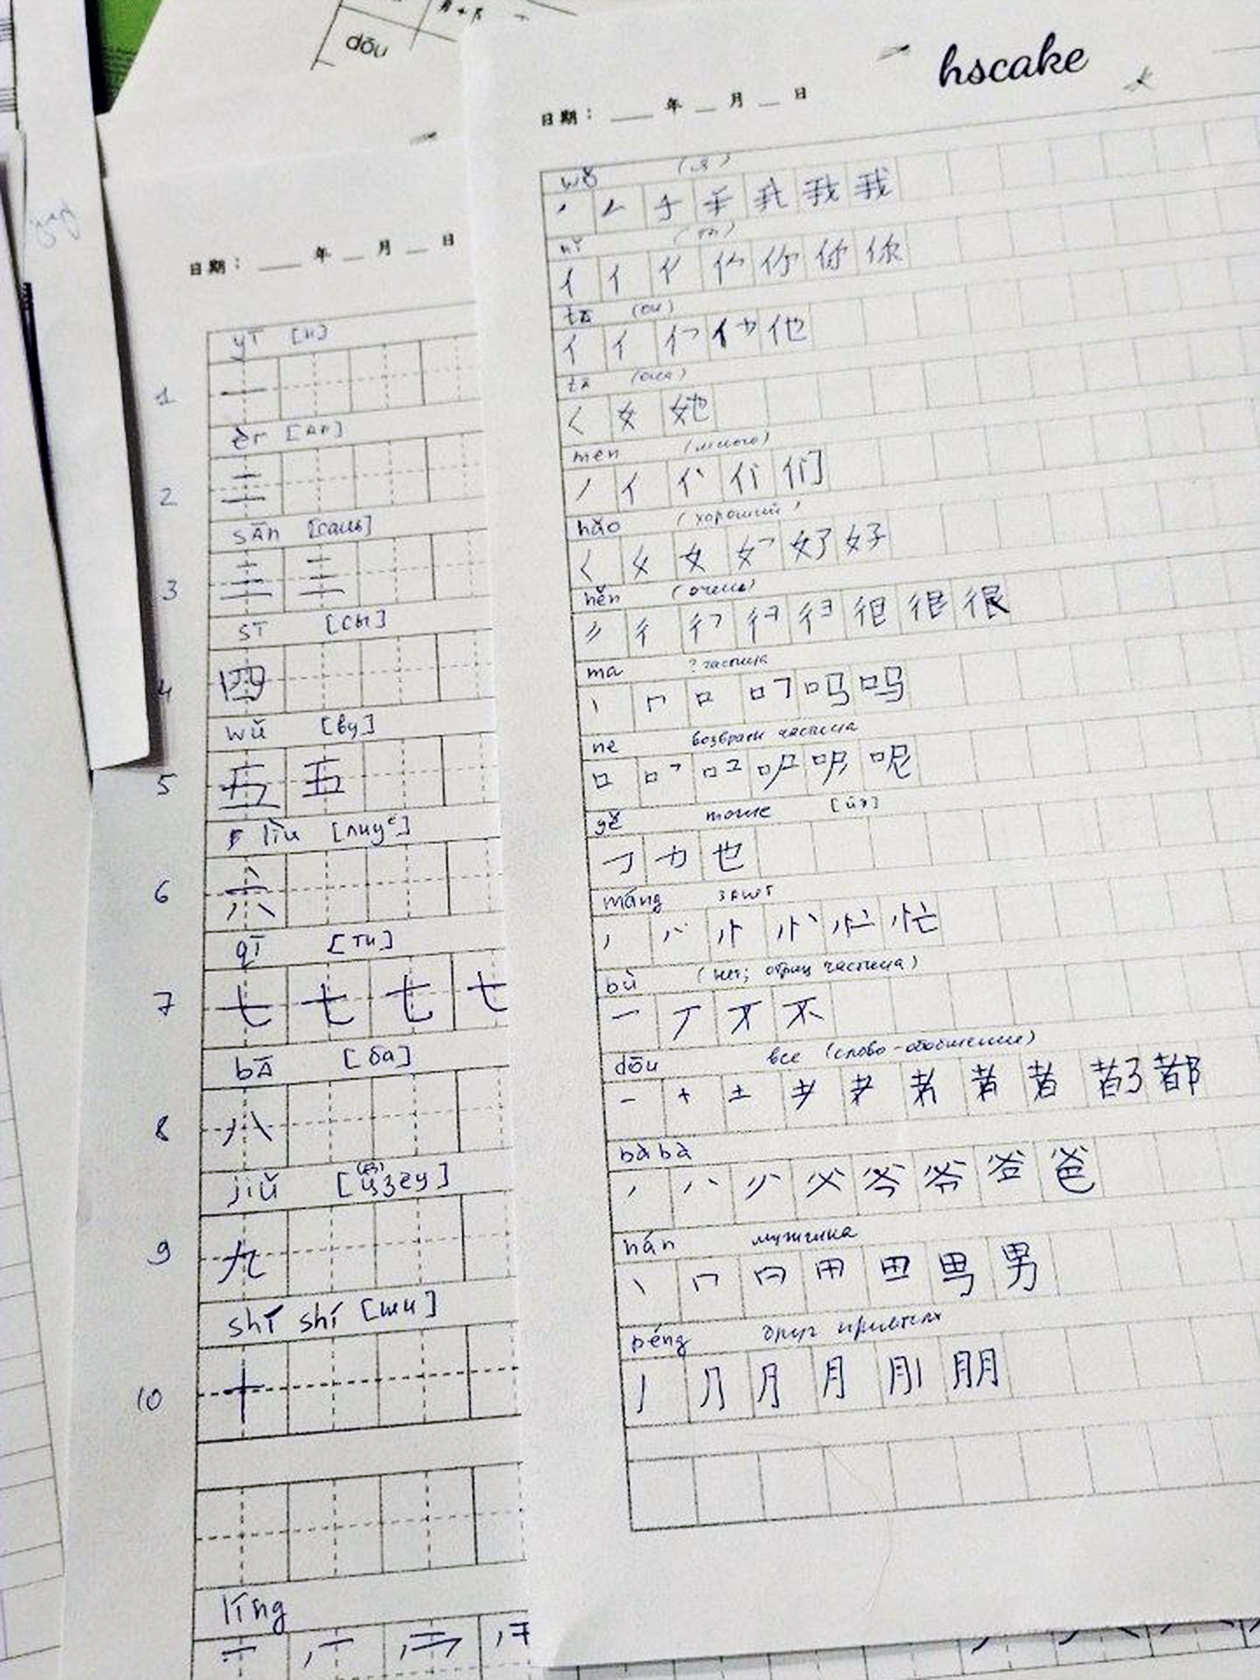 dōu
hscake
日期： 年 月 日
wǒ (я)
我 我
nǐ (ты)
你 你
tā (он)
亻 亻 他
tā (она)
く 女 她
men (много)
丿 亻 们
hǎo (хороший)
く 女 女 好 好
hěn (очень)
彳 很 很
ma ? частица
丶 口 吗 吗
ne возвратн частица
口 呢
yě тоже [йэ]
也
máng занят
忙
bù (нет; отриц частица)
一 丆 不
dōu все (слово-обобщение)
一 十 土 者 者 都
bàba
丿 八 父 爸
nán мужчина
丶 冂 田 男 男
péng друг приятель
丿 月 月 朋
日期： 年 月 日
yī [и]
1 一
èr [ар]
2 二
sān [сань]
3 三 三
sī [сы]
4 四
wǔ [ву]
5 五 五
liù [лиуе]
6 六
qī [ти]
7 七 七 七 七
bā [ба]
8 八
jiǔ [цзеу]
9 九
shí shí [ши]
10 十
líng